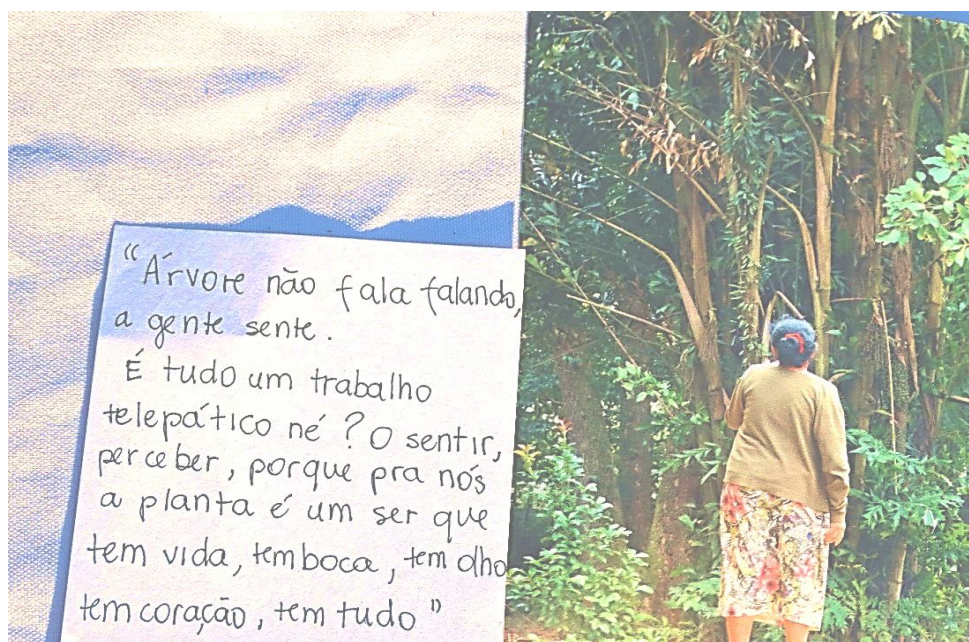 "Árvore não fala falando,
a gente sente.
É tudo um trabalho
telepático né? O sentir,
perceber, porque pra nós
a planta é um ser que
tem vida, tem boca, tem olho
tem coração, tem tudo"